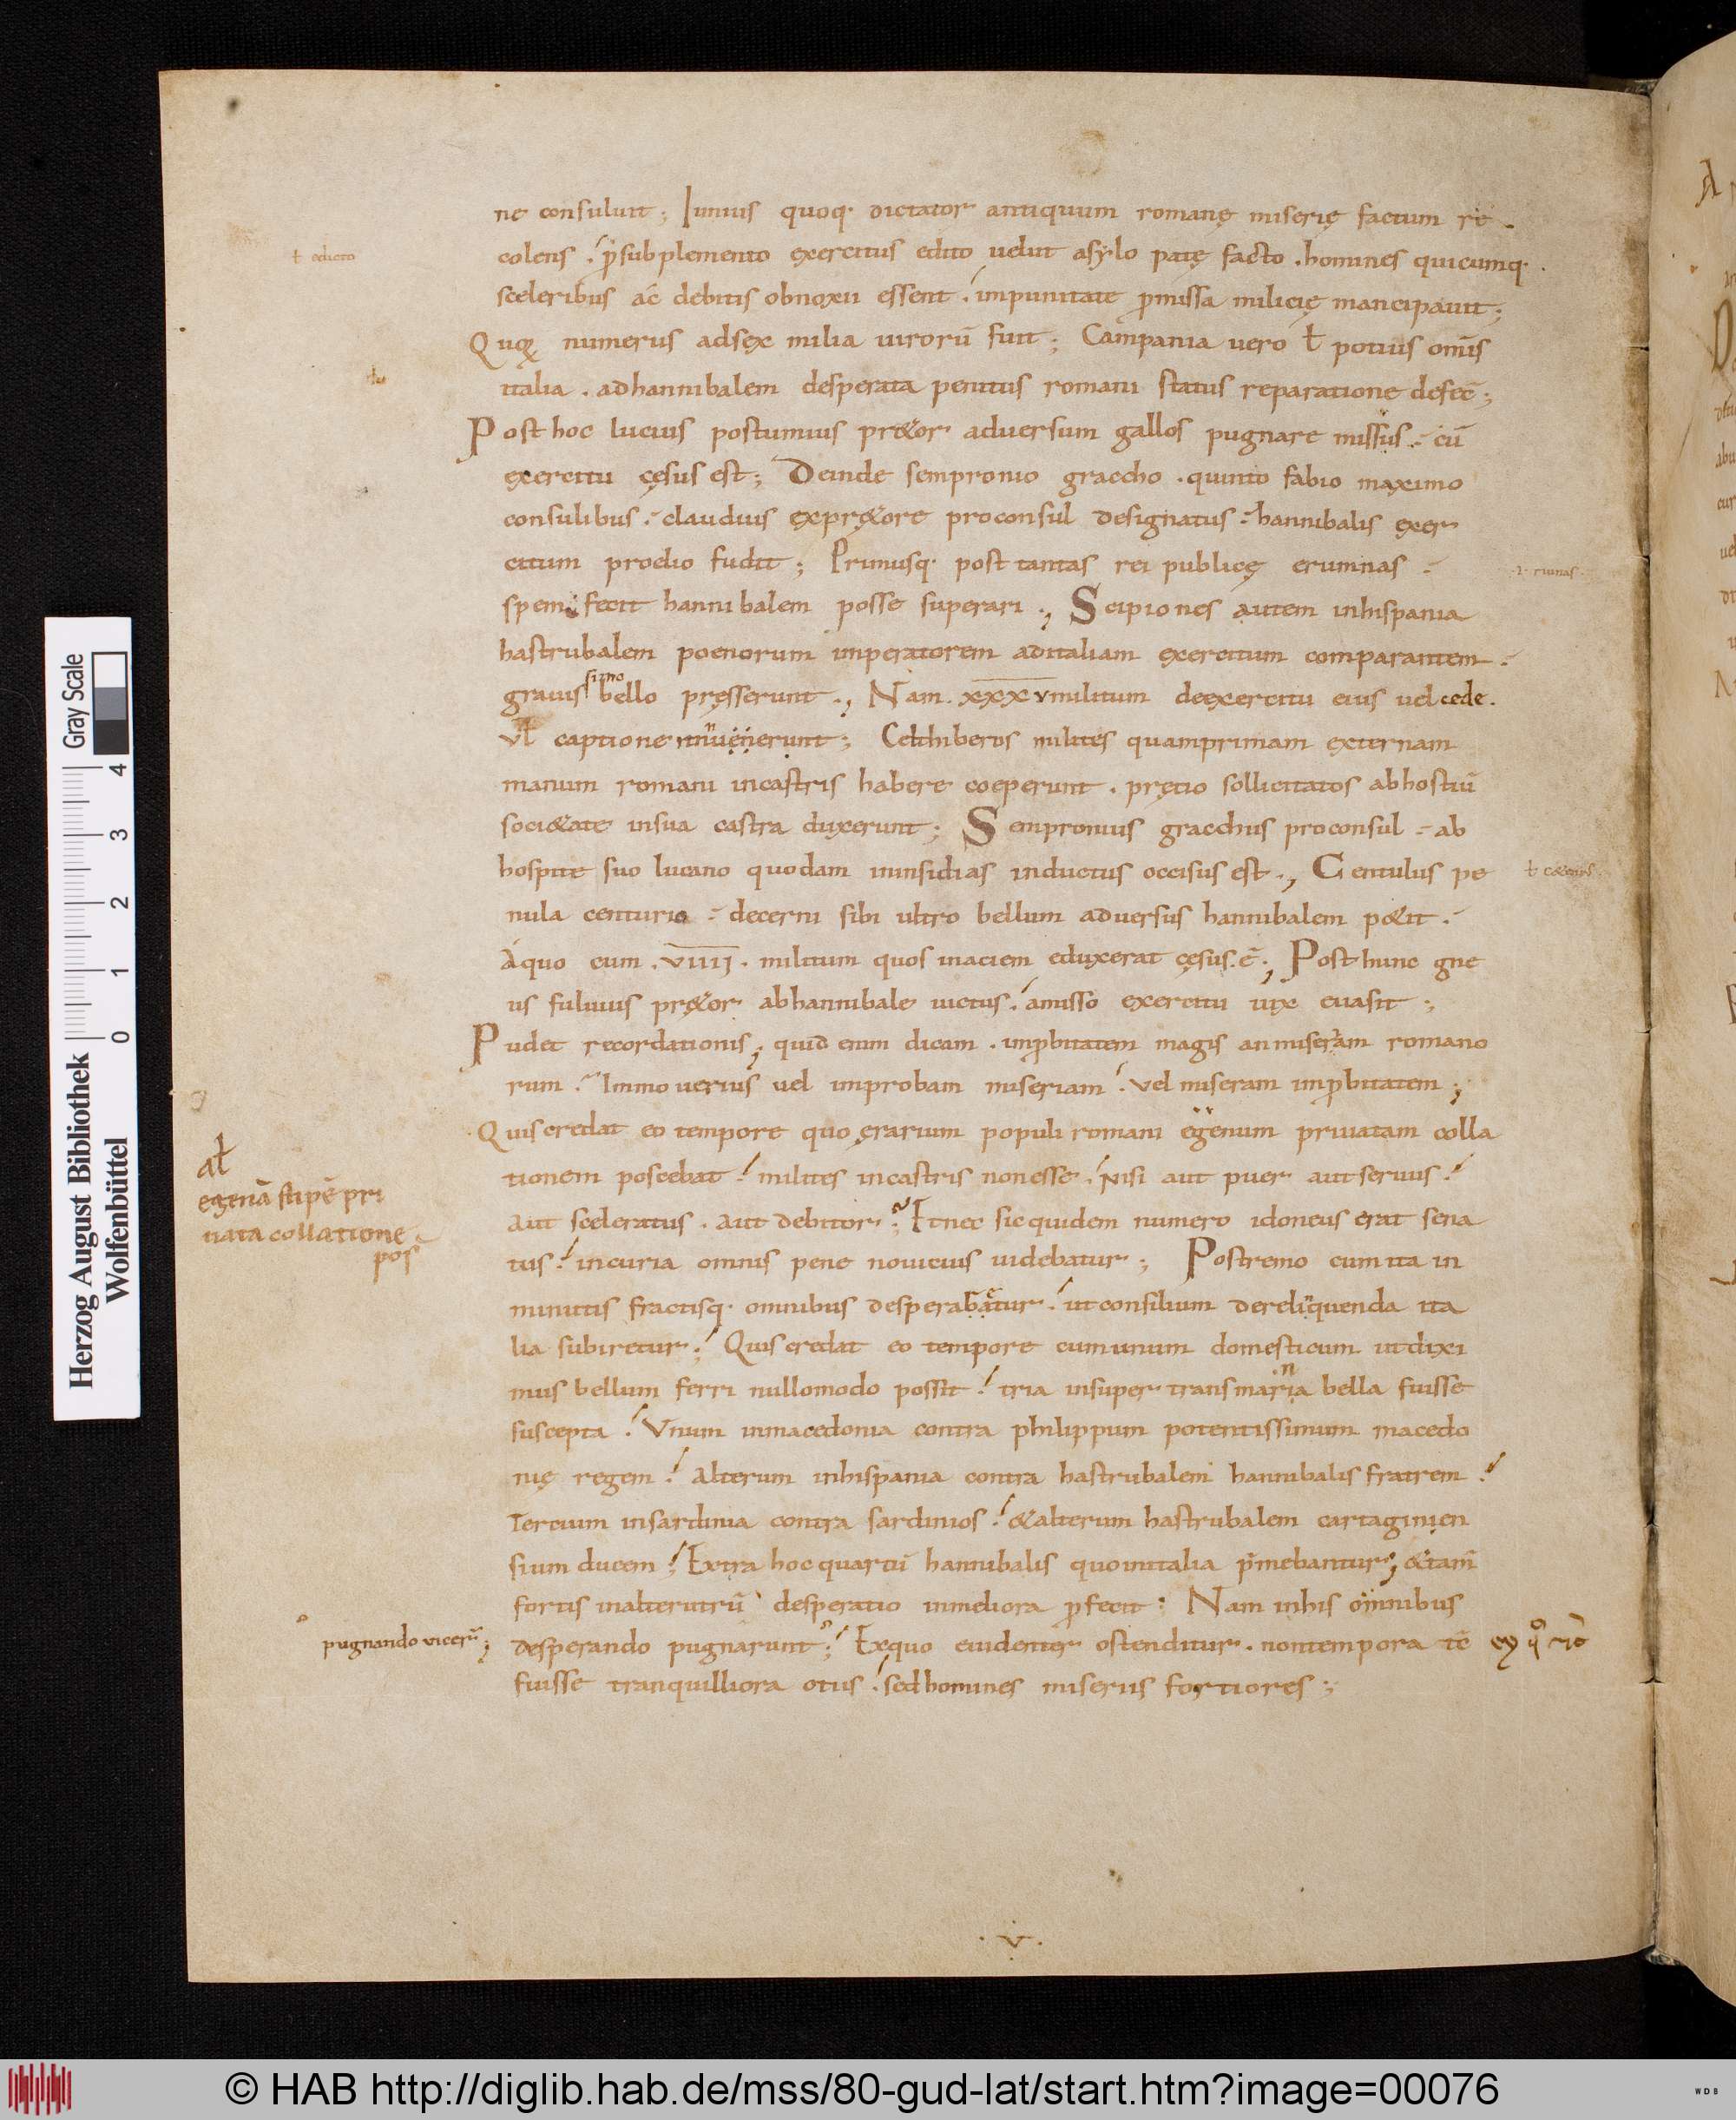 ne consuluit ; Iunius quoq· dictator antiquum romanę miserię factum re
ƚ edicto
colens . p̄ subplemento exercitus edito uelut asẏlo patę facto . homines quicumq·
sceleribus ac debitis obnoxii essent . impunitate p̄missa milicię mancipauit ;
numerus adsex milia uirorū fuit ; Campania uero ƚ potius om̄is
italia . adhannibalem desperata penitus romani status reparatione defec̄ ;
Post hoc lucius postumius pr&or aduersum gallos pugnare missus . cū
exercitu cęsus est ; Deinde sempronio graccho . quinto fabio maximo
consulibus . claudius expr&ore proconsul designatus . hannibalis exer
citum proelio fudit ; Primusq· post tantas rei publicę erumnas .
spem fecit hannibalem posse superari ., Scipiones autem inhispania
hastrubalem poenorum imperatorem aditaliam exercitum comparantem .
simo
grauis bello pręsserunt ., Nam . xxxv militum deexercitu eius uel cede .
Vƚ captione ; Celthiberos milites quamprimam externam
manum romani incastris habere coeperunt . prętio sollicitatos abhostiū
soci&ate insua castra duxerunt ; Sempronius gracchus proconsul . ab
hospite suo lucano quodam ininsidias inductus occisus est ., Centulus pe
nula centurio . decerni sibi ultro bellum aduersus hannibalem p&iit .
Aquo cum . VIIII . militum quos inaciem eduxerat cęsus . ē ., Posthunc gne
us fuluius pr&or abhannibale uictus . amisso exercitu uix euasit ;
Pudet recordationis ; quid enim dicam . inp̄bitatem magis an miseriam romano
rum . Immo uerius uel improbam miseriam . vel miseram inp̄bitatem ;
Quis credat eo tempore quo ęrarium populi romani egenum priuatam colla
aƚ
egenā stipē pri
uata collatione
pos
tionem poscebat . milites incastris nonesse . Nisi aut puer aut seruus .
Aut sceleratus . aut debitor . Et nec sic quidem numero idoneus erat sena
tus . incuria omnis pene nouicius uidebatur ; Postremo cum ita in
minutis fractisq· omnibus desperabatur . ut consilium derelinquenda ita
lia subiretur ; Quis credat eo tempore cum unum domesticum ut dixi
mus bellum ferri nullomodo possit . tria insuper transmaria bella fuisse
n
suscepta . Vnum inmacedonia contra philippum potentissimum macedo
nię regem . Alterum inhispania contra hastrubalem hannibalis fratrem .
Tercium insardinia contra sardinios . &alterum hastrubalem cartaginien
sium ducem ; Extra hoc quartū hannibalis quo initalia p̄mebantur ; &tam̄
fortis inalterutrū desperatio inmeliora p̄fecit : Nam inhis omnibus
pugnando vicer̄ ;
desperando pugnarunt ; Exquo euidenter ostenditur . non tempora tē
fuisse tranquilliora otiis . sed homines miseriis fortiores ;
. v .
Gray Scale
0 1 2 3 4
Herzog August Bibliothek
Wolfenbüttel
© HAB http://diglib.hab.de/mss/80-gud-lat/start.htm?image=00076
WDB